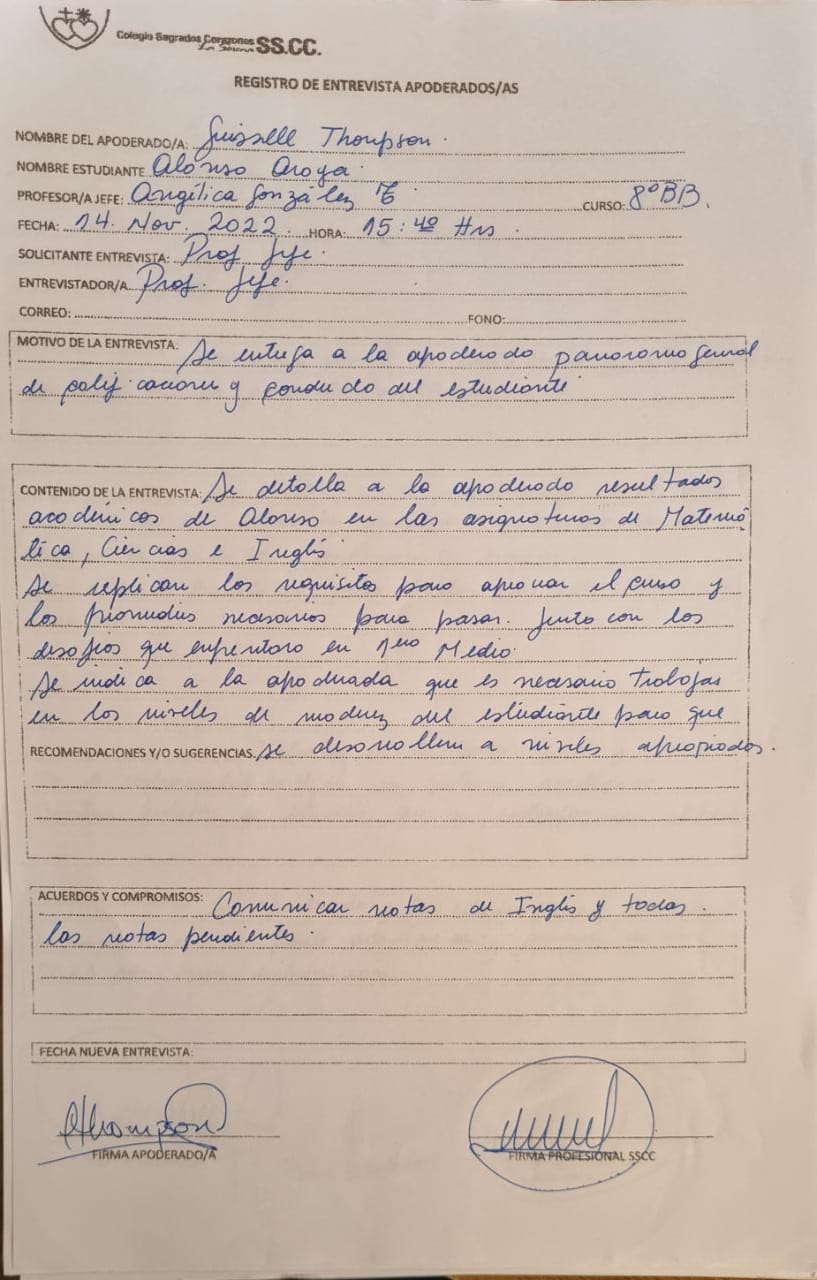 Colegio Sagrados Corazones SS.CC.
La Serena
REGISTRO DE ENTREVISTA APODERADOS/AS
NOMBRE DEL APODERADO/A: Guisselle Thompson.
NOMBRE ESTUDIANTE Alonso Araya.
PROFESOR/A JEFE: Angélica González CURSO: 8º BB.
FECHA: 14. Nov. 2022. HORA: 15:40 Hrs.
SOLICITANTE ENTREVISTA: Prof Jefe.
ENTREVISTADOR/A Prof. Jefe.
CORREO: FONO:
MOTIVO DE LA ENTREVISTA: Se entrega a la apoderada panorama general
de calificaciones y conducta del estudiante.
CONTENIDO DE LA ENTREVISTA: Se detalla a la apoderada resultados
académicos de Alonso en las asignaturas de Matemá
tica, Ciencias e Inglés.
Se explican los requisitos para aprobar el curso y
los promedios necesarios para pasar. Junto con los
desafíos que enfrentara en 1ero Medio.
Se indica a la apoderada que es necesario trabajar
en los niveles de madurez del estudiante para que
RECOMENDACIONES Y/O SUGERENCIAS. se desarrollen a niveles apropiados.
ACUERDOS Y COMPROMISOS: Comunicar notas de Inglés y todas.
las notas pendientes.
FECHA NUEVA ENTREVISTA:
Thompson
FIRMA APODERADO/A FIRMA PROFESIONAL SSCC